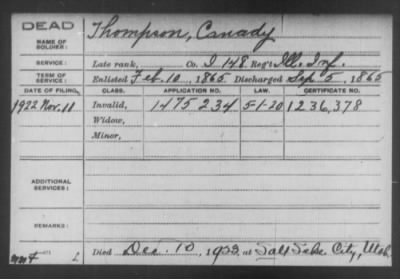 DEAD
NAME OF SOLDIER: Thompson, Canady
SERVICE: Late rank, Co. I 148 Reg't Ill. Inf.
TERM OF SERVICE: Enlisted Feb. 10, 1865 Discharged Sep 5, 1865
DATE OF FILING. CLASS. APPLICATION NO. LAW. CERTIFICATE NO.
1922 Nov. 11 Invalid, 1475234 5-1-20 1236,378
Widow,
Minor,
ADDITIONAL SERVICES:
REMARKS:
Died Dec. 10, 1933, at Salt Lake City, Utah